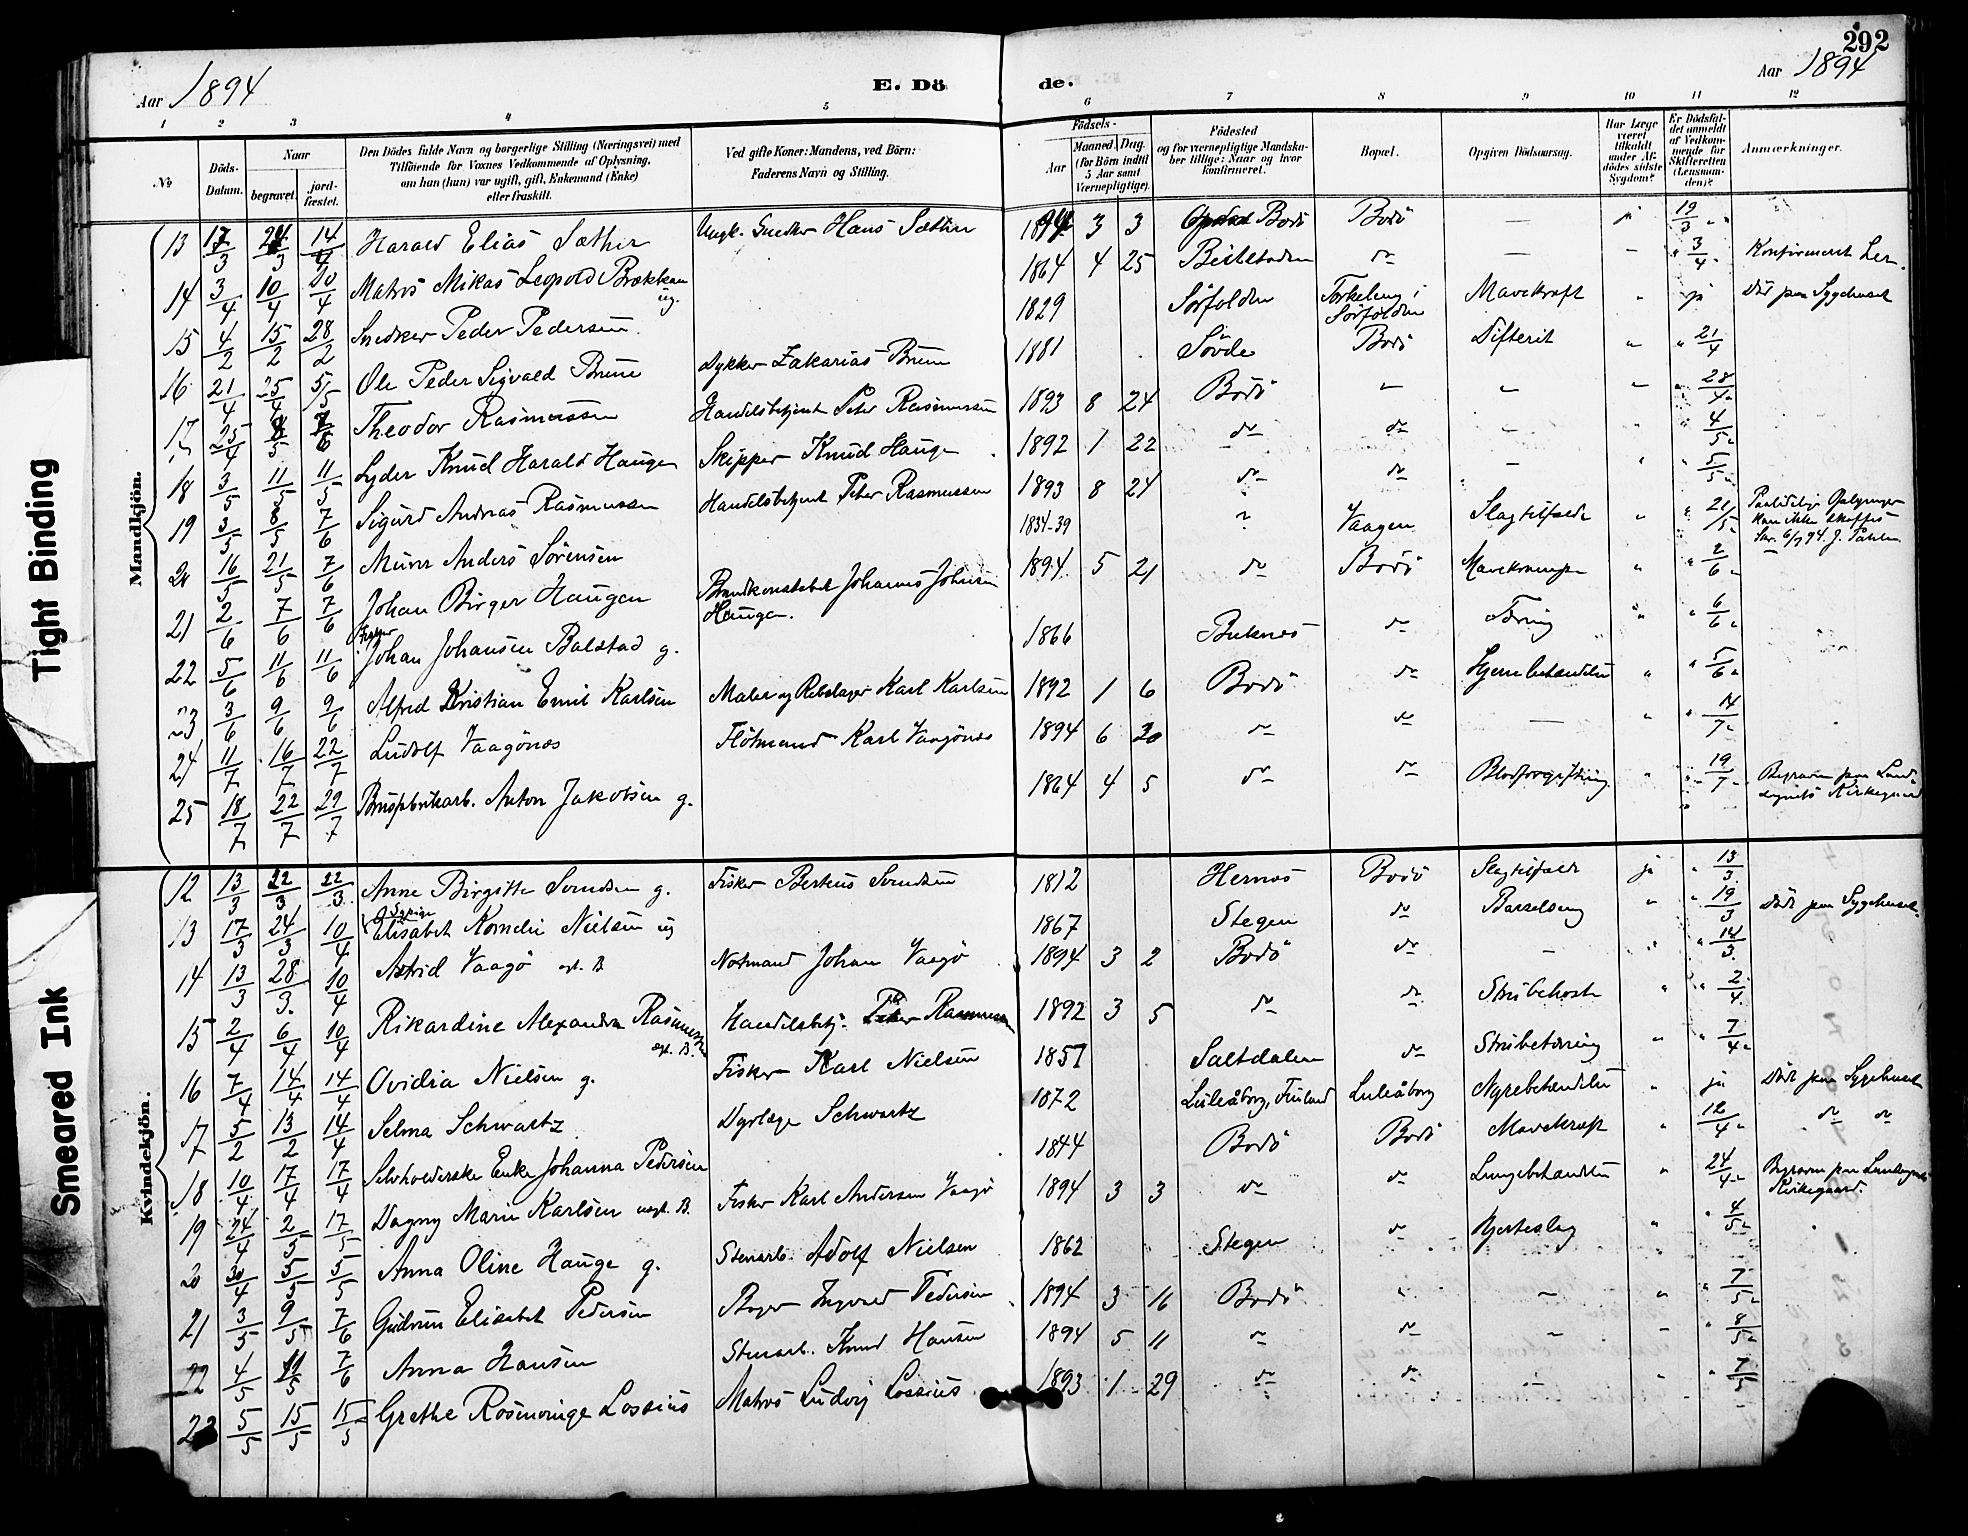 292
Aar 1894
E. Dö
de.
Aar 1894
1 2 3 4 5 6 7 8 9 10 11 12
No
Döds-Datum.
Naar
begravet.
jord-fæstet.
Den Dödes fulde Navn og borgerlige Stilling (Næringsvei) med
Tilföiende for Voxnes Vedkommende af Oplysning,
om han (hun) var ugift, gift, Enkemand (Enke)
eller fraskilt.
Ved gifte Koner: Mandens, ved Börn:
Faderens Navn og Stilling.
Födsels-
Aar
Maaned Dag.
(for Börn indtil
5 Aar samt
Værnepligtige).
Födested
og for værnepligtige Mandska-
ber tillige: Naar og hvor
konfirmeret.
Bopæl.
Opgiven Dödsaarsag.
Har Læge
været
tilkaldt
under Af-
dödes sidste
Sygdom?
Er Dödsfal-
det anmeldt
af Vedkom-
mende for
Skifteretten
(Lensman-
den)?
Anmærkninger.
Mandkjön.
13 17/3 24/3 14/4 Harald Elias Sæther Snedker Hans Sæther 1894 3 3 Bodö Bodö — ja 19/3
14 3/4 10/4 20/4 Matros Mikas Leopold Brækkan ug. 1864 4 25 " 3/4
15 4/2 15/2 28/2 Snedker Peder Pedersen 1829 Sörfolden Sörfolden Mavekræft " ja Död paa Sygehuset
16 21/4 25/4 5/5 Ole Peder Sigvald Brun Dykker Zakarias Brun 1881 Bodö Difterit " 21/4
17 25/4 Theodor Rasmussen Handelsbetjent Peter Rasmussen 1893 8 24 Bodö " " " 28/4
18 3/5 11/5 11/5 Lyder Knud Harald Hauge Skipper Knud Hauge 1892 1 22 do do " " 4/5
19 3/5 8/5 7/6 Sigurd Andreas Rasmussen Handelsbetjent Peter Rasmussen 1893 8 24 do do — " 5/5
20 16/5 21/5 7/6 Murer Anders Sörensen 1834-39 " Vaagen Slagtilfælde " 21/5
21 2/6 7/6 7/6 Johan Birger Haugen Brandkonstabel Johannes Johnsen
Haugen. 1894 5 21 do Bodö Mavekrampe " 2/6
22 5/6 11/6 11/6 Johan Johansen Balstad g. 1866 Buknes do Tæring " 6/6
23 3/6 9/6 9/6 Alfred Kristian Emil Karlsen Maler og Rebslager Karl Karlsen 1892 1 6 Bodö do " 5/6
24 11/7 16/7 22/7 Ludolf Vaagönes Flötmand Karl Vaagönes 1894 6 30 do do — " 14/7
25 18/7 22/7 29/7 Brusfabrikarb. Anton Jakobsen g. 1864 4 5 do do Blodforgiftning " 19/7 Begraven paa Land-
sognets Kirkegaard
Kvindekjön.
12 13/3 22/3 22/3 Anne Birgitte Svendsen g. Fisker Berteus Svendsen 1812 Hernös Bodö Slagtilfælde ja 13/3
13 17/3 24/3 10/4 Elisabet Kornelie Nielsen ug 1867 Stegen do Barselseng " 19/3 Död paa Sygehuset.
14 13/3 28/3 10/4 Astrid Vaagö Notmand Johan Vaagö 1894 3 2 Bodö do — " 14/3
15 2/4 6/4 10/4 Rikardine Alexandra Rasmussen Handelsbetj. Peter Rasmussen 1892 3 5 do do Strubehoste " 2/4
16 7/4 14/4 14/4 Ovidia Nielsen g. Fisker Karl Nielsen 1857 Saltdalen do Strubetæring " 7/4
17 5/2 13/2 14/4 Selma Schwartz Dyrlæge Schwartz 1872 Uleåborg, Finland Uleåborg Nyrebetændelse " ja Död paa Sygehuset
18 10/4 17/4 17/4 Selvholderske Enke Johanna Pedersen 1844 Bodö Bodö Mavekræft " 12/4 do do
19 24/4 2/5 17/5 Dagny Marie Karlsen Fisker Karl Andersen Vaagö 1894 3 3 do do Lungebetændelse " 24/4 Begraven paa Landsognets
Kirkegaard.
20 30/4 5/5 5/5 Anna Oline Hauge g. Stenarb. Adolf Nielsen 1862 Stegen do Hjerteslag " 4/5
21 3/5 9/5 7/6 Gudrun Elisabet Pedersen Bager Ingvard Pedersen 1894 3 16 Bodö " — " 7/5
22 4/5 11/5 7/6 Anna Hansen Stenarb. Knud Hansen 1894 5 11 do do — " 8/5
23 5/5 15/5 15/5 Grethe Rosmoinge Lossius Matros Ludvig Lossius 1893 1 29 do do — " 7/5
Tight Binding
Smeared Ink